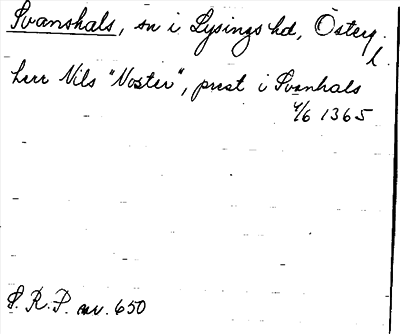 Svanshals, sn i Lysings hd, Österg.
l.
herr Nils "Noster", prest i Svanhals
4/6 1365
S.R.P. nr. 650